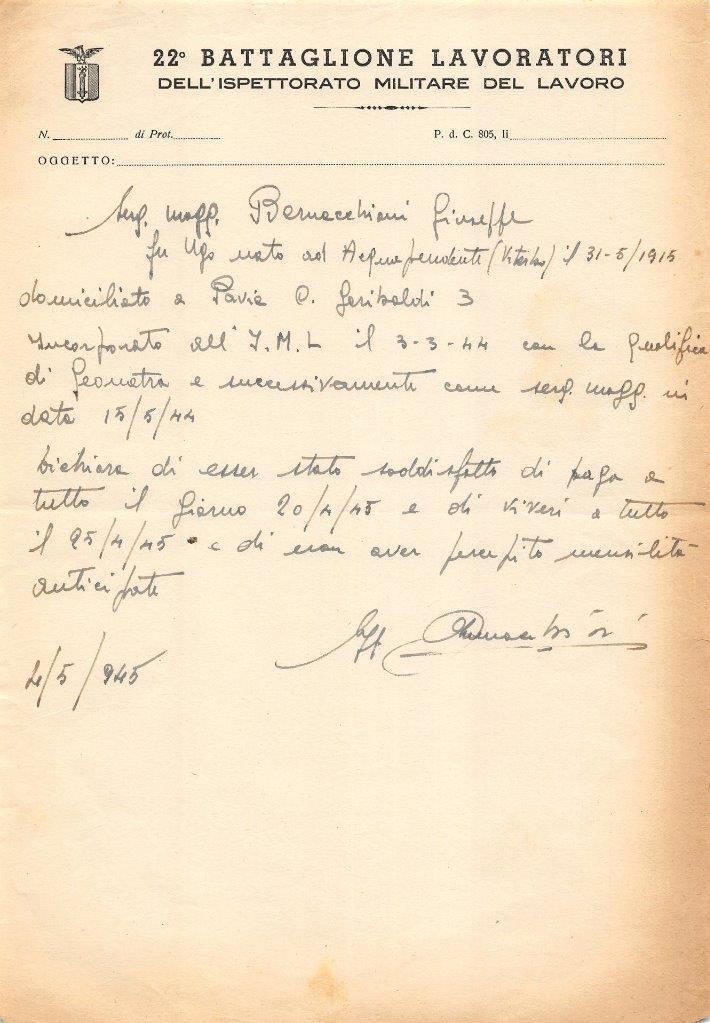 22º BATTAGLIONE LAVORATORI
DELL'ISPETTORATO MILITARE DEL LAVORO
N. di Prot. P. d. C. 805, li
OGGETTO:
Serg. magg. Bernacchioni Giuseppe
fu Ugo nato ad Acquapendente (Viterbo) il 31-5/1915
domiciliato a Pavia C. Garibaldi 3
Incorporato all'I.M.L il 3-3-44 con la qualifica
di Geometra e successivamente come serg. magg. in
data 15/5/44
Dichiara di esser stato soddisfatto di paga a
tutto il giorno 20/4/45 e di viveri a tutto
il 25/4/45 e di non aver percepito mensilità
anticipate
4/5/945